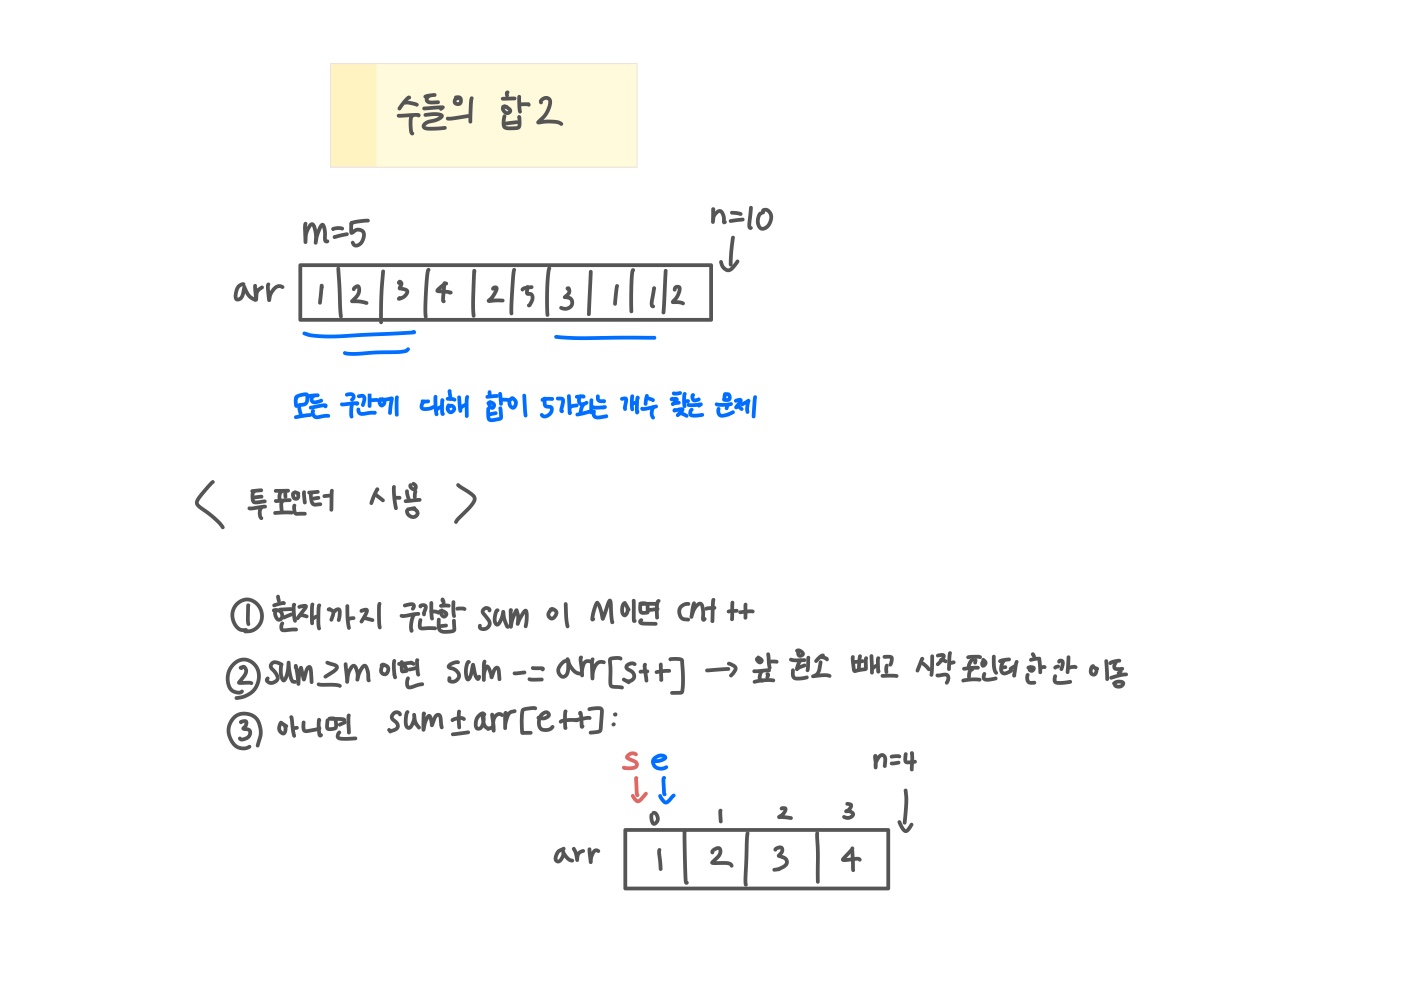 수들의 합 2
m=5
n=10
arr 1 2 3 4 2 5 3 1 1 2
모든 구간에 대해 합이 5가되는 개수 찾는 문제
< 투포인터 사용 >
① 현재까지 구간합 sum 이 M이면 cnt ++
② sum≥m이면 sum -= arr[s++] → 앞 원소 빼고 시작포인터 한 칸 이동
③ 아니면 sum ± arr[e++]:
s e
n=4
0 1 2 3
arr 1 2 3 4